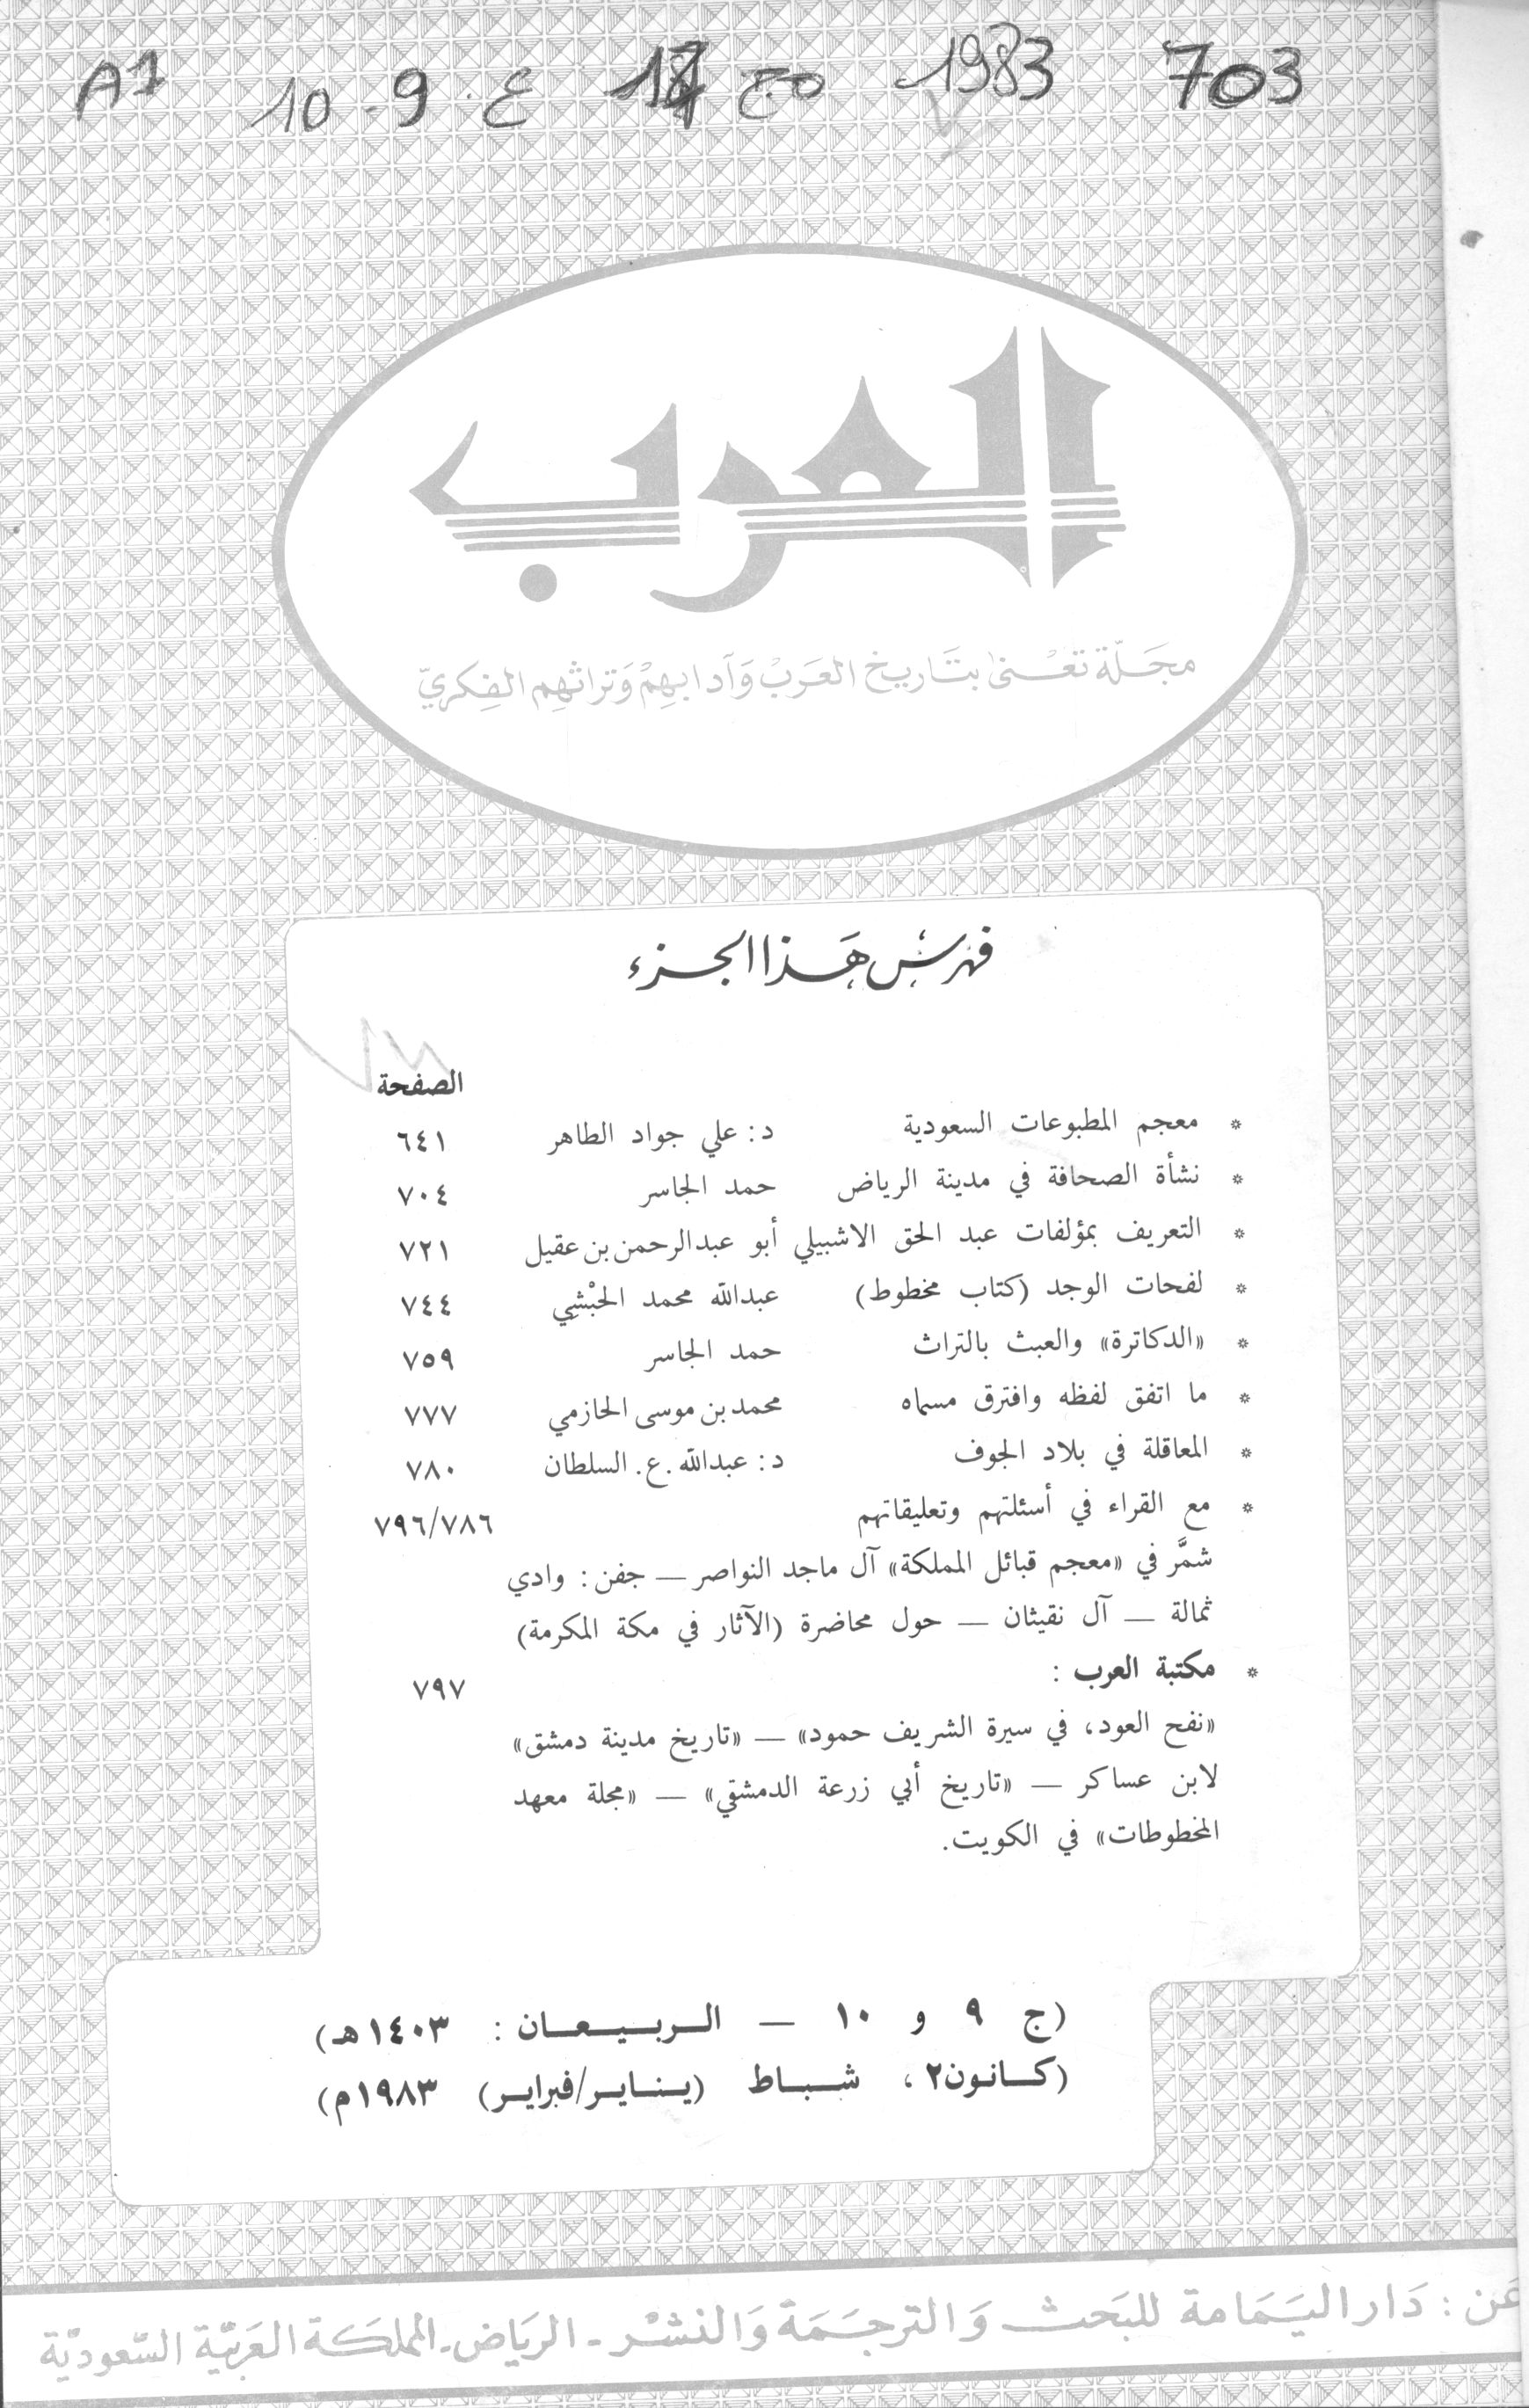 703 1983 مج 17 ع 9-10 A1
العرب
مجَلّة تعْنىٰ بتَاريخ العَربْ وَآدابهِمْ وَتراثهِم الفِكريّ
فهرس هَذا الجزء
الصفحة
* معجم المطبوعات السعودية د: علي جواد الطاهر ٦٤١
* نشأة الصحافة في مدينة الرياض حمد الجاسر ٧٠٤
* التعريف بمؤلفات عبد الحق الاشبيلي أبو عبدالرحمن بن عقيل ٧٢١
* لفحات الوجد (كتاب مخطوط) عبدالله محمد الحبْشِي ٧٤٤
* «الدكاترة» والعبث بالتراث حمد الجاسر ٧٥٩
* ما اتفق لفظه وافترق مسماه محمد بن موسى الحازمي ٧٧٧
* المعاقلة في بلاد الجوف د: عبدالله .ع. السلطان ٧٨٠
* مع القراء في أسئلتهم وتعليقاتهم ٧٩٦/٧٨٦
شمَّر في «معجم قبائل المملكة» آل ماجد النواصر — جفن: وادي
ثمالة — آل نقيثان — حول محاضرة (الآثار في مكة المكرمة)
* مكتبة العرب : ٧٩٧
«نفح العود، في سيرة الشريف حمود» — «تاريخ مدينة دمشق»
لابن عساكر — «تاريخ أبي زرعة الدمشقي» — «مجلة معهد
المخطوطات» في الكويت.
(ج ٩ و ١٠ — الربيعان: ١٤٠٣هـ)
(كانون٢، شباط (يناير/فبراير) ١٩٨٣م)
عَن: دَار اليَمَامة للبَحث وَالترجَمَة وَالنشْر - الريَاض - المملكَة العَربيَّة السّعوديّة